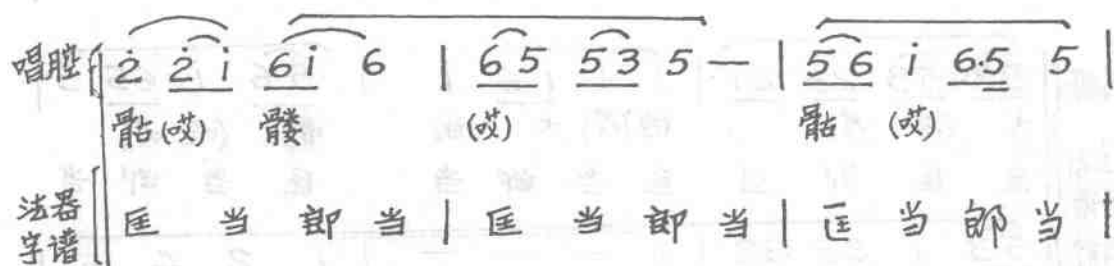 唱腔 2̇ 2̇ i̇ 6 i̇ 6 | 6 5 5 3 5 — | 5 6 i̇ 6·5 5 |
骷 (哎) 髅 (哎) 骷 (哎)
法器字谱 匡 当 郎 当 | 匡 当 郎 当 | 匡 当 郎 当 |